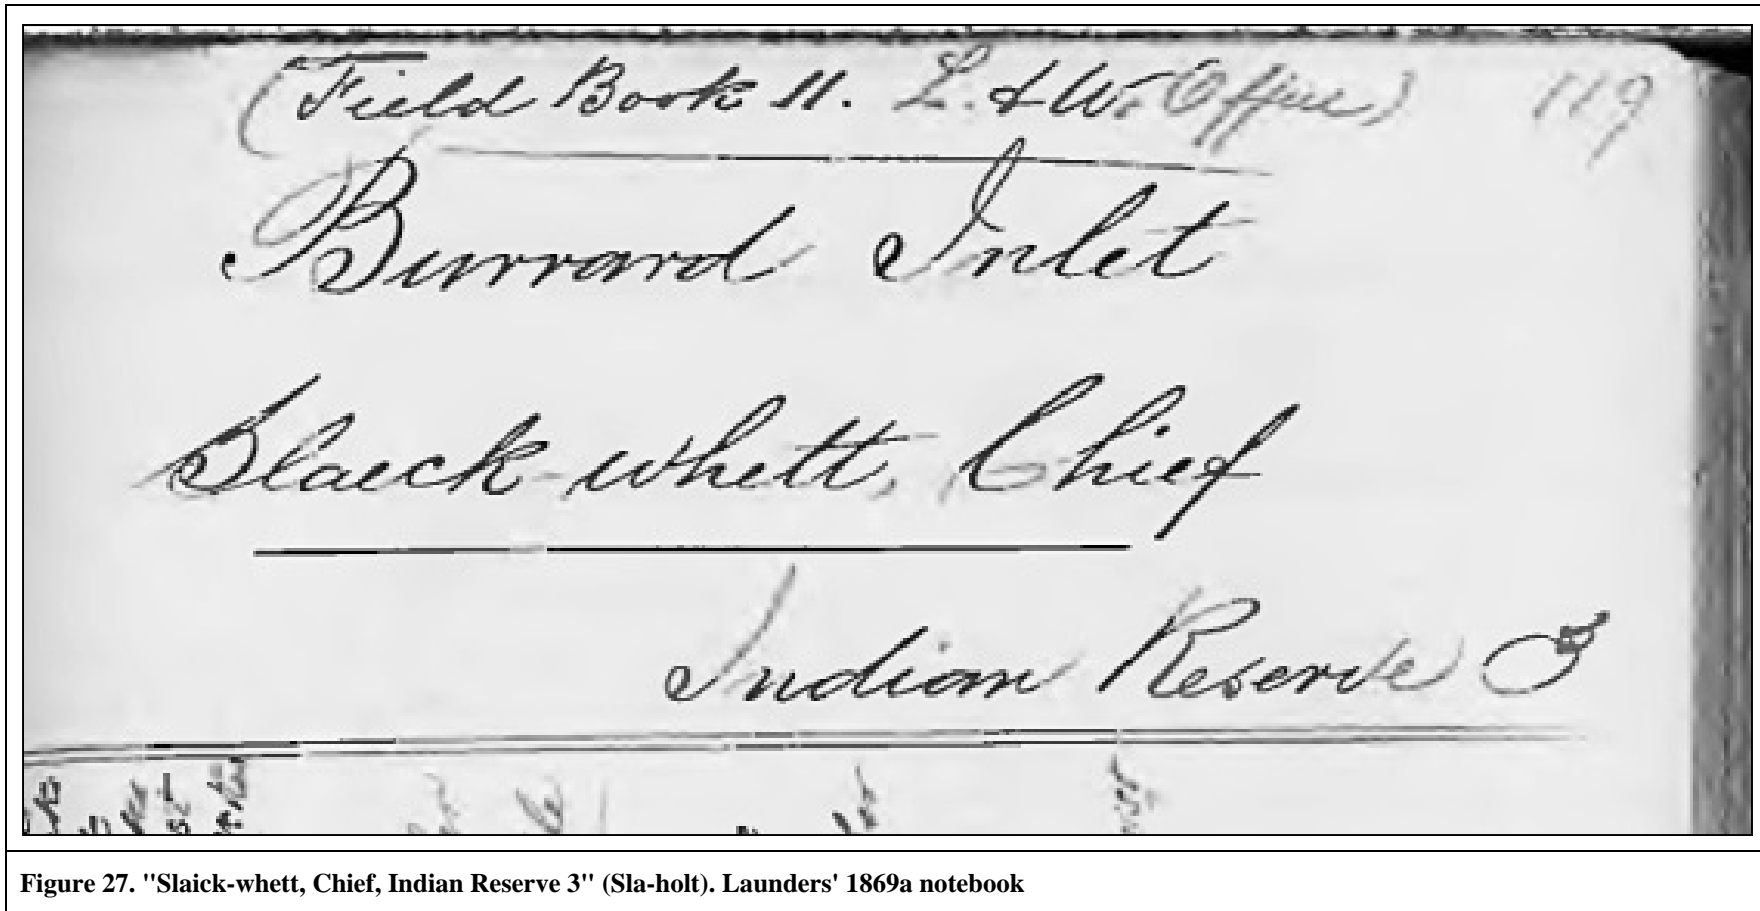 (Field Book 11. L. & W. Office) 119
Burrard Inlet
Slaick-whett, Chief
Indian Reserve 3
Figure 27. "Slaick-whett, Chief, Indian Reserve 3" (Sla-holt). Launders' 1869a notebook